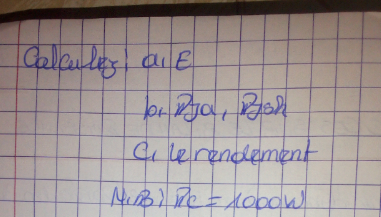 Calculez : a, E
b, Pja, Pjsh
C, le rendement
N.B : Pc = 1000W